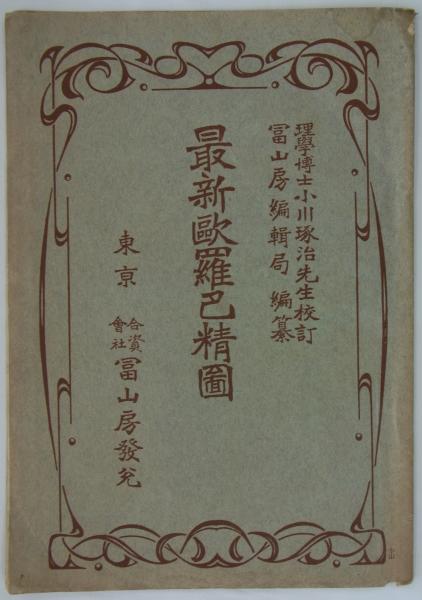 理學博士小川琢治先生校訂
冨山房編輯局 編纂
最新歐羅巴精圖
東京
合資會社 冨山房發兌